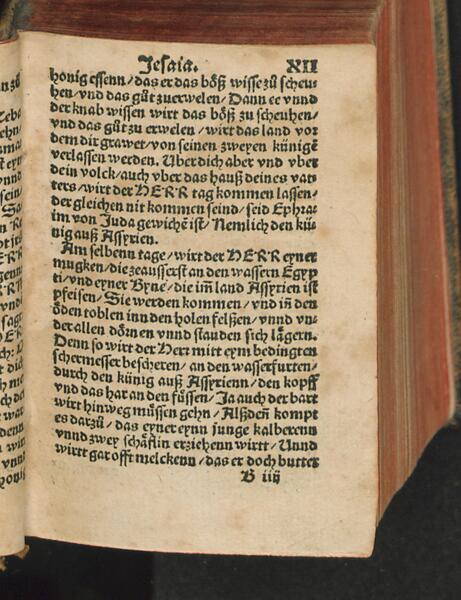 Jesaia. XII
honig essenn / das er das böß wisse zů scheu-
hen / vnd das gůt zuerwelen / Dann ee vnnd
der knab wissen wirt das böß zu scheuhen /
vnd das gůt zu erwelen / wirt das land vor
dem dir grawet / von seinen zweyen künigē
verlassen werden. Vber dich aber vnd vber
dein volck / auch vber das hauß deines vat-
ters / wirt der HERR tag kommen lassen /
der gleichen nit kommen seind / seid Ephra-
im von Juda gewichē ist / Nemlich den kü-
nig auß Assyrien.
Am selbenn tage / wirt der HERR eyner
mugken / die zeausserst an den wassern Egyp
ti / vnd eyner Byne / die im̄ land Assyrien ist
pfeisen / Sie werden kommen / vnd in̄ den
öden toblen inn den holen felßen / vnnd vn-
der allen dörnen vnnd stauden sich lägern.
Denn so wirt der Herr mitt eym bedingten
schermesser bescheren / an den wasserfurten /
durch den künig auß Assyrienn / den kopff
vnd das har an den füssen / Ja auch der bart
wirt hinweg müssen gehn / Alßden̄ kompt
es darzů / das eyner eynn junge kalberenn
vnnd zwey schäflin erziehenn wirtt / Vnnd
wirtt gar offt melckenn / das er doch butter
B iiij